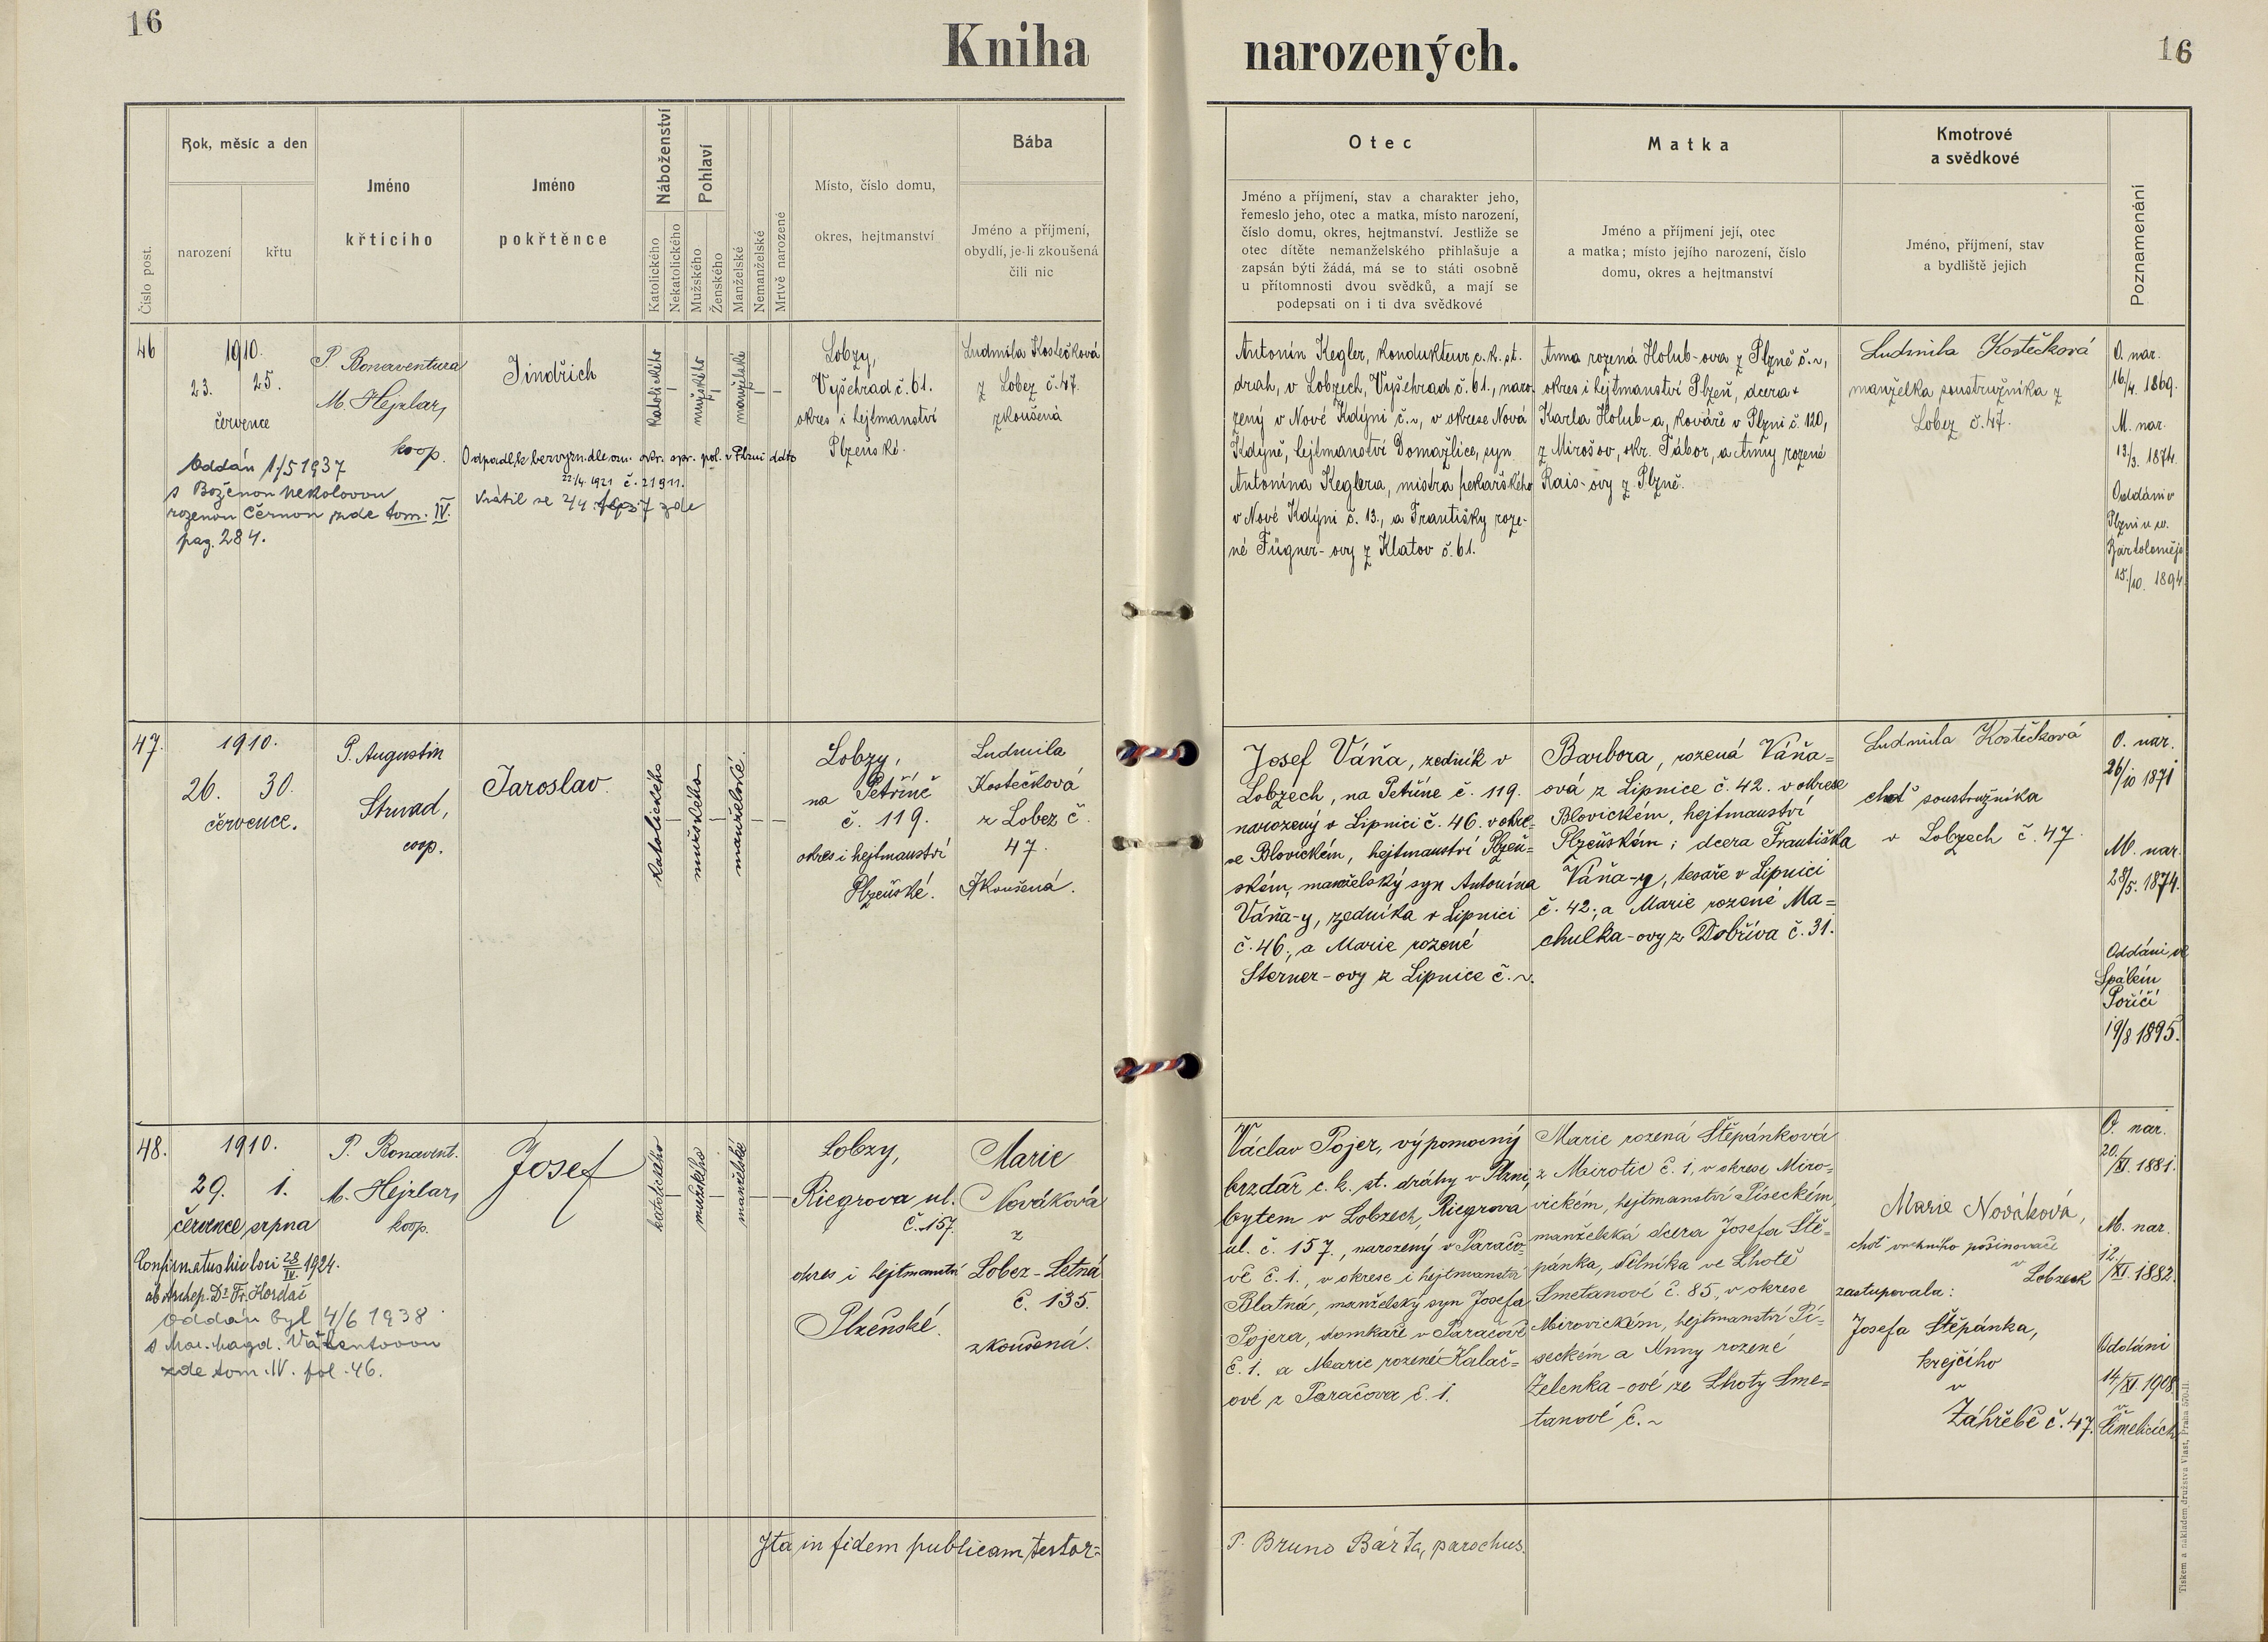 16
Kniha narozených.
16
Číslo post.
Rok, měsíc a den
narození
křtu
Jméno
křticího
Jméno
pokřtěnce
Náboženství
Katolického
Nekatolického
Pohlaví
Mužského
Ženského
Manželské
Nemanželské
Mrtvě narozené
Místo, číslo domu,
okres, hejtmanství
Bába
Jméno a příjmení,
obydlí, je-li zkoušená
čili nic
Otec
Jméno a příjmení, stav a charakter jeho,
řemeslo jeho, otec a matka, místo narození,
číslo domu, okres, hejtmanství. Jestliže se
otec dítěte nemanželského přihlašuje a
zapsán býti žádá, má se to státi osobně
u přítomnosti dvou svědků, a mají se
podepsati on i ti dva svědkové
Matka
Jméno a příjmení její, otec
a matka; místo jejího narození, číslo
domu, okres a hejtmanství
Kmotrové
a svědkové
Jméno, příjmení, stav
a bydliště jejich
Poznamenání
46
1910.
23. 25.
července
P. Bonaventura
M. Hejzlar,
koop.
Jindřich
katolického
mužského
manželské
Lobzy,
Vyšehrad č. 61.
okres i hejtmanství
Plzeňské.
Ludmila Kostečková
z Lobez č. 47.
zkoušená
Oddán 1/5 1937
s Boženou Nekolovou
rozenou Černou zde tom. IV.
pag. 284.
Odpadl, k bezvyzn. dle ozn. okr. spr. pol. v Plzni ddto
22/4. 1921 č. 21911.
Vrátil se
zde
Antonín Kegler, kondukteur c. k. st.
drah, v Lobzech, Vyšehrad č. 61., naro-
zený v Nové Kdýni č. ~, v okrese Nová
Kdyně, hejtmanství Domažlice, syn
Antonína Keglera, mistra pekařského
v Nové Kdýni č. 13., a Františky roze-
né Fügner-ovy z Klatov č. 61.
Anna rozená Holub-ova z Plzně č. ~,
okres i hejtmanství Plzeň, dcera
Karla Holub-a, kováře v Plzni č. 120,
z Mirošov, okr. Tábor, a Anny rozené
Rais-ovy z Plzně.
Ludmila Kostečková
manželka soustružníka z
Lobez č. 47.
O. nar.
16/4. 1869.
M. nar.
13/3. 1874.
Oddáni v
Plzni u sv.
Bartoloměje
15/10. 1894.
47.
1910.
26. 30.
července.
P. Augustin
Strnad,
coop.
Jaroslav.
katolického
mužského
manželské.
Lobzy,
na Petříně
č. 119.
okres i hejtmanství
Plzeňské.
Ludmila
Kostečková
z Lobez č.
47.
Zkoušená.
Josef Váňa, zedník v
Lobzech, na Petříne č. 119.
narozený v Lipnici č. 46. v okre-
se Blovickém, hejtmanství Plzeň-
ském, manželský syn Antonína
Váňa-y, zedníka v Lipnici
č. 46., a Marie rozené
Sterner-ovy z Lipnice č. ~.
Barbora, rozená Váňa=
ová z Lipnice č. 42. v okrese
Blovickém, hejtmanství
Plzeňském; dcera Františka
Váňa-y, tesaře v Lipnici
č. 42; a Marie rozené Ma=
chulka-ovy z Dobříva č. 31.
Ludmila Kostečková
choť soustružníka
v Lobzech č. 47.
O. nar.
26/10 1871
M. nar.
28/5. 1874.
Oddáni ve
Spálém
Poříčí
19/8 1895.
48.
1910.
29. 1.
července srpna
P. Bonavent.
M. Hejzlar,
koop.
Josef
katolického
mužského
manželské
Lobzy,
Riegrova ul.
č. 157.
okres i hejtmanství
Plzeňské.
Marie
Nováková
z
Lobez-Letná
č. 135.
zkoušená.
Confirmatus hic loci 28/IV. 1924.
ab Archep. Dr. Fr. Kordač
Oddán byl 4/6 1938
s Mar. Magd. Valentovou
zde tom. IV. fol. 46.
Václav Pojer, výpomocný
brzdař c. k. st. dráhy v Plzni,
bytem v Lobzech, Riegrova
ul. č. 157., narozený v Paračo-
vě č. 1., v okrese i hejtmanství
Blatná, manželský syn Josefa
Pojera, domkaře v Paračově
č. 1. a Marie rozené Kalač-
ové z Paračova č. 1.
Marie rozená Štěpánková
z Mirotic č. 1. v okrese Miro-
vickém, hejtmanství Píseckém,
manželská dcera Josefa Ště-
pánka, dělníka ve Lhotě
Smetanově č. 85, v okrese
Mirovickém, hejtmanství Pí-
seckém a Anny rozené
Zelenka-ové ze Lhoty Sme=
tanově č. ~
Marie Nováková,
choť vrchního pošinovače
v Lobzech
zastupovala:
Josefa Štěpánka,
krejčího
v
Záhřebě č. 47.
O. nar.
20./XI. 1881.
M. nar.
12./XI. 1882.
Oddáni
14/XI. 1908
v
Čimelicích
Ita in fidem publicam testor=
P. Bruno Bárta, parochus.
Tiskem a nákladem družstva Vlast, Praha 570-II.